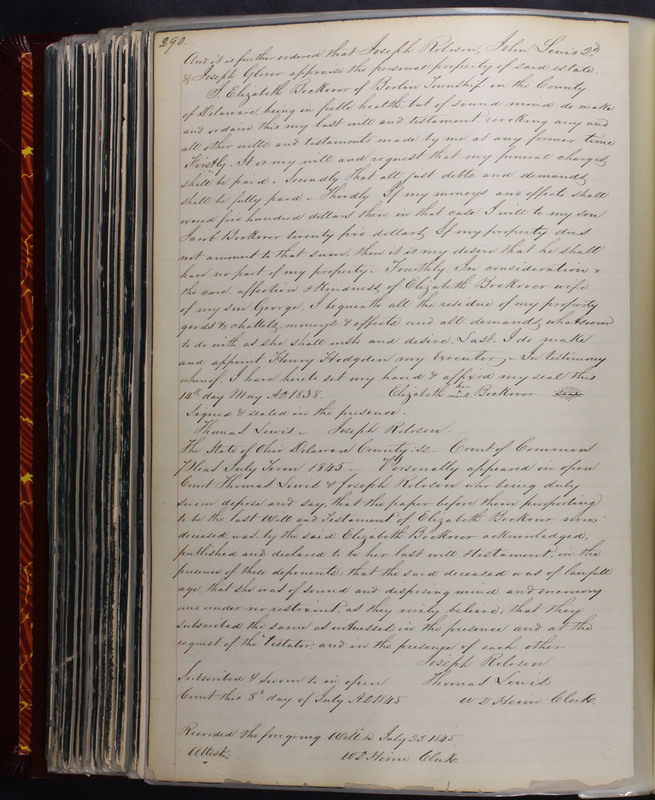 290.
And it is further ordered that Joseph Roloson, John Lewis 2d
& Joseph Glover appraise the personal property of said estate.
I, Elizabeth Bockover of Berlin Township in the County
of Delaware being in feeble health, but of sound mind do make
and ordain this my last will and testament, revoking any and
all other wills and testaments made by me at any former time
Firstly. It is my will and request that my funeral charges
shall be paid. Secondly that all just debts and demands
shall be fully paid. Thirdly If my moneys and effects shall
exceed five hundred dollars then in that case I will to my son
Jacob Bockover twenty five dollars, If my property does
not amount to that sum, then it is my desire that he shall
have no part of my property. Fourthly, In consideration &
the care, affection & Kindness, of Elizabeth Bockover wife
of my son George, I bequeath all the residue of my property
goods & chattels, moneys & effects and all demands, whatsoever
to do with as she shall wish and desire. Last. I do make
and appoint Henry Hodgden my executor,. In testimony
whereof, I have hereto set my hand & affixed my seal this
14th day May AD 1838. Elizabeth her mark Bockover seal
Signed & sealed in the presence.
Thomas Lewis Joseph Roloson.
The State of Ohio Delaware County, ss. Court of Common
Pleas July Term 1845. Personally appeared in open
Court Thomas Lewis & Joseph Roloson who being duly
sworn depose and say, that the paper before them purporting
to be the last Will and Testament of Elizabeth Bockover now
deceased, was, by the said Elizabeth Bockover acknowledged,
published and declared to be her last will & testament, in the
presence of these deponents; that the said deceased was of lawfull
age, that she was of sound and disposing mind and memory
and under no restraint, as they verily believe; that they
subscribed the same as witnesses, in the presence and at the
request of the testator, and in the presence of each other
Joseph Roloson
Subscribed & sworn to in open Thomas Lewis
Court this 8th day of July AD 1845 W D Heim Clerk.
Recorded the foregoing Will &c July 25 1845
Attest. W D Heim Clerk